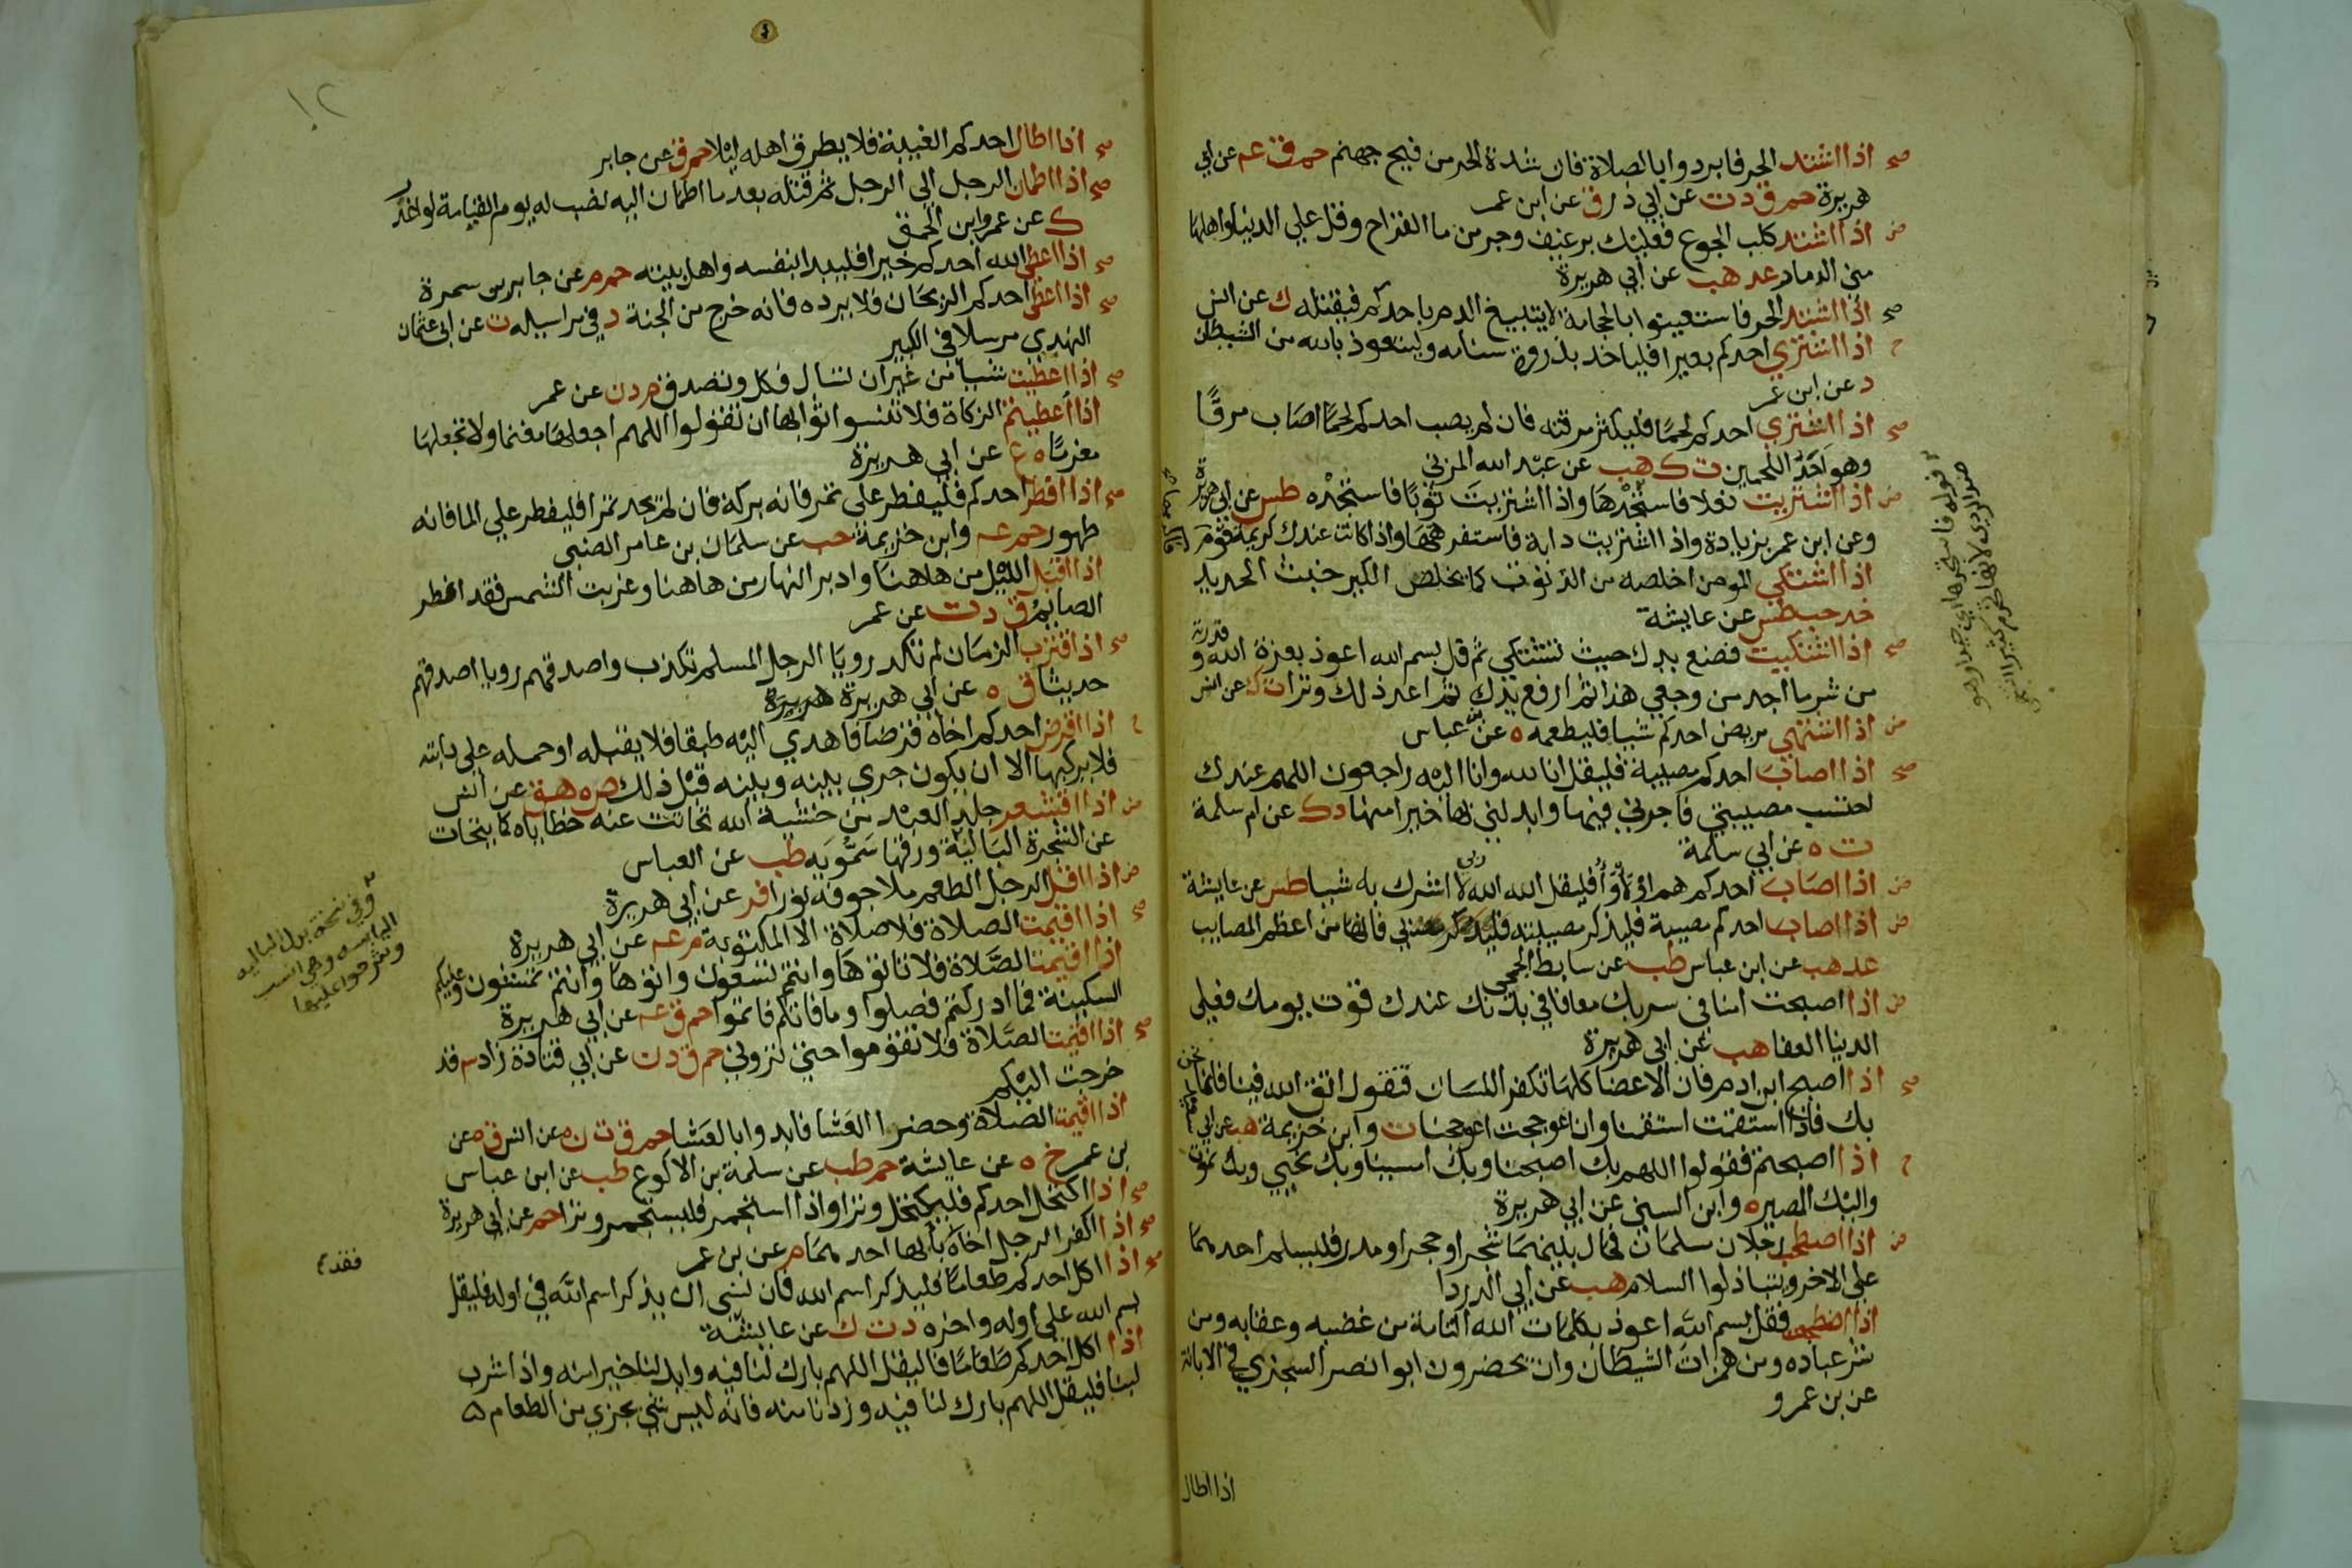 صح اذا اشتد الحر فابردوا بالصلاة فان شدة الحر من فيح جهنم حم ق عم عن ابي
هريرة حم ق د ت عن ابي ذر ق عن ابن عمر
ض اذا اشتد كلب الجوع فعليك برغيف وجر من ما القراح وقل علي الدنيا واهلها
مني الدمار عد هب عن ابي هريرة
صح اذا اشتد الحر فاستعينوا بالحجامة لا يتبيغ الدم باحدكم فيقتله ك عن انس
ح اذا اشتري احدكم بعيرا فلياخذ بذروة سنامه وليتعوذ بالله من الشيطان
د عن ابن عمر
صح اذا اشتري احدكم لحمًا فليكثر مرقته فان لم يصب احدكم لحمًا اصاب مرقًا
وهو احَدُ اللحمين ت ك هب عن عبد الله المزني
ض اذا اشتريت نعلا فاستجدها واذا اشتريت ثوبًا فاستجده طس عن ابي هريرة
وعن ابن عمر بزيادة واذا اشتريت دابة فاستفرهها واذا كانت عندك كريمة قوم
اذا اشتكي المومن اخلصه من الذنوب كما يخلص الكير خبث الحديد
خد حب طس عن عايشة
صح اذا اشتكيت فضع يدك حيث تشتكي ثم قل بسم الله اعوذ بعزة الله و قدرته
من شر ما اجد من وجعي هذا ثم ارفع يدك ثم اعد ذلك وترا ت ك عن انس
ض اذا اشتهي مريض احدكم شيا فليطعمه ه عن عباس
صح اذا اصاب احدكم مصيبة فليقل انا لله وانا اليه راجعون اللهم عندك
احتسب مصيبتي فاجرني فيها وابدلني بها خيرا منها د ك عن ام سلمة
ت ه عن ابي سلمة
ض اذا اصاب احدكم هم او لأواء فليقل الله الله ربي لا اشرك به شيا طس عن عايشة
ض اذا اصاب احدكم مصيبة فليذكر مصيبته بي فانها من اعظم المصايب
عد هب عن ابن عباس طب عن سابط الجمحي
ض اذا اصبحت امنا في سربك معافا في بدنك عندك قوت يومك فعلي
الدنيا العفا هب عن ابي هريرة
صح اذا اصبح ابن ادم فان الاعضا كلها تكفر اللسان فتقول اتق الله فينا فانما نحن
بك فاذا استقمت استقمنا وان اعوججت اعوججنا ت وابن خزيمة هب عن ابي سعيد
ح اذا اصبحتم فقولوا اللهم بك اصبحنا وبك امسينا وبك نحيي وبك نموت
واليك المصير ه وابن السني عن ابي هريرة
ض اذا اصطحب رجلان مسلمان فحال بينهما شجر او حجر او مدر فليسلم احدهما
علي الاخر ويتباذلوا السلام هب عن ابي الدردا
اذا اضطجعت فقل بسم الله اعوذ بكلمات الله التامة من غضبه وعقابه ومن
شر عباده ومن همزات الشيطان وان يحضرون ابوا نصر السجزي في الابانة
عن بن عمرو
اذا اطال
صح اذا اطال احدكم الغيبة فلا يطرق اهله ليلا حم ق عن جابر
صح اذا اطمان الرجل الي الرجل ثم قتله بعد ما اطمان اليه نصب له يوم القيامة لوا غدر
ك عن عمرو ابن الحمق
صح اذا اعطي الله احدكم خيرا فليبدا بنفسه واهل بيته حم م عن جابر بن سمرة
صح اذا اعطي احدكم الريحان فلا يرده فانه خرج من الجنة د في مراسيله ت عن ابي عثمان
النهدي مرسلا في الكبير
صح اذا اعطيت شيأ من غير ان تسال فكل وتصدق م د ن عن عمر
اذا اعطيتم الزكاة فلا تنسوا ثوابها ان تقولوا اللهم اجعلها مغنما ولا تجعلها
مغرمًا ه ع عن ابي هريرة
صح اذا افطر احدكم فليفطر علي تمر فانه بركة فان لم يجد تمرا فليفطر علي الما فانه
طهور حم عه وابن خزيمة حب عن سلمان بن عامر الضبي
اذا اقبل الليل من هاهنا وادبر النهار من هاهنا وغربت الشمس فقد افطر
الصايم ق د ت عن عمر
صح اذا اقترب الزمان لم تكد رويا الرجل المسلم تكذب واصدقهم رويا اصدقهم
حديثا ق ه عن ابي هريرة هريرة
ح اذا اقرض احدكم اخاه قرضا فاهدي اليه طبقا فلا يقبله او حمله علي دابته
فلا يركبها الا ان يكون جري بينه وبينه قبل ذلك ص ه هق عن انس
ض اذا اقشعر جلد العبد من خشية الله تحاتت عنه خطاياه كما يتحات
عن الشجرة البالية ورقها سَمُّويه طب عن العباس
ض اذا اقل الرجل الطعم ملا جوفه نورا فر عن ابي هريرة
صح اذا اقيمت الصلاة فلا صلاة الا المكتوبة م عه عن ابي هريرة
اذا اقيمت الصلاة فلا تاتوها وانتم تسعون واتوها وانتم تمشون وعليكم
السكينة فما ادركتم فصلوا وما فاتكم فاتموا حم ق عه عن ابي هريرة
صح اذا اقيمت الصلاة فلا تقوموا حتي تروني حم ق د ن عن ابي قتادة زاد م قد
خرجت اليكم
اذا اقيمت الصلاة وحضر العشا فابدوا بالعشا حم ق ت ن ه عن انس ق ه عن
بن عمر خ ه عن عايشة حم طب عن سلمة بن الاكوع طب عن ابن عباس
صح اذا اكتحل احدكم فليكتحل وترا واذا استجمر فليستجمر وترا حم عن ابي هريرة
صح اذا اكفر الرجل اخاه باء بها احدهما م عن بن عمر
صح اذا اكل احدكم طعامًا فليذكر اسم الله فان نسي ان يذكر اسم الله في اوله فليقل
بسم الله علي اوله واخره د ت ك عن عايشة
اذا اكل احدكم طعامًا فاليقل اللهم بارك لنا فيه وابدلنا خيرا منه واذا شرب
لبنا فليقل اللهم بارك لنا فيه وزدنا منه فانه ليس شي يجزي من الطعام
وفي نسخة بدل الباليه
اليابسه وهي انسب
وشرحوا عليها
فقد